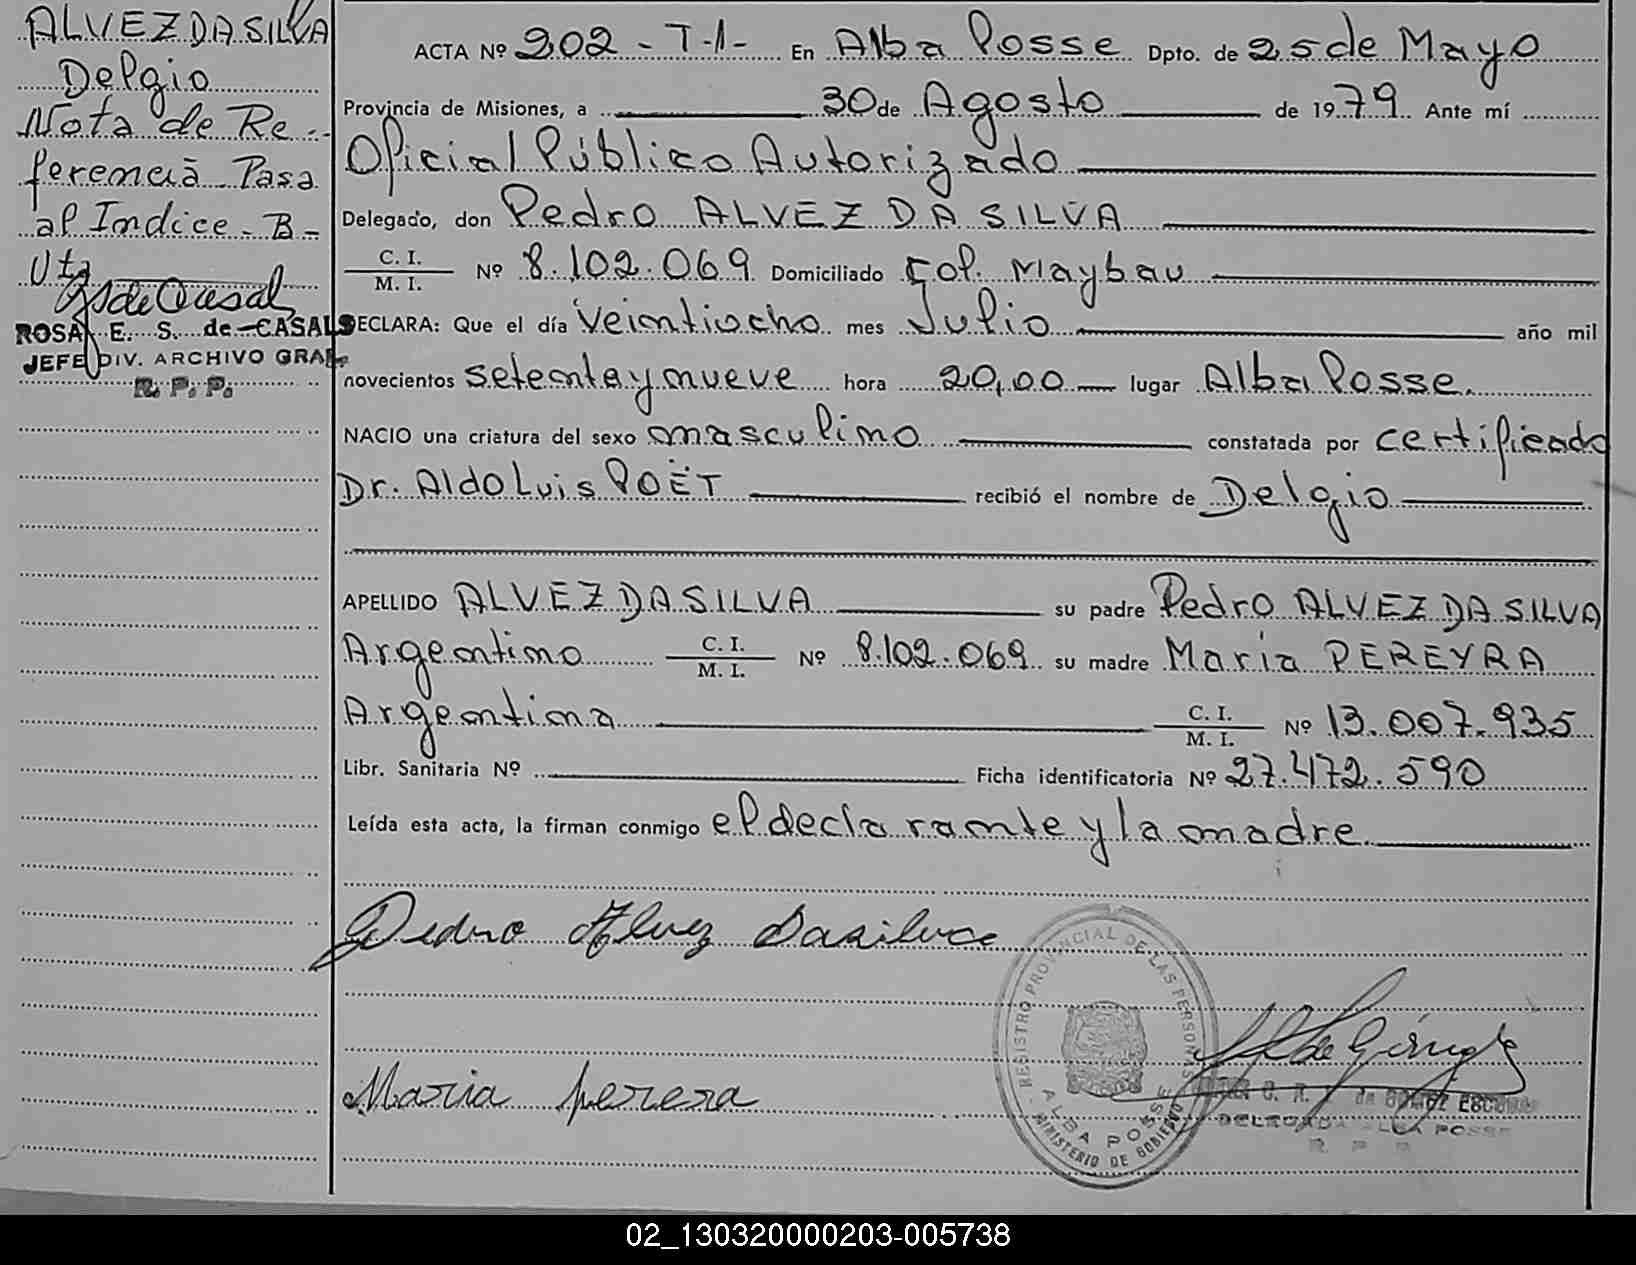 ALVEZ DA SILVA
Delgio
Nota de Re-
ferencia Pasa
al Indice - B -
Uta
ROSA E. S. de CASALS
JEFE DIV. ARCHIVO GRAL.
R. P. P.
ACTA Nº 202 - T-1- En Alba Posse Dpto. de 25 de Mayo
Provincia de Misiones, a 30 de Agosto de 1979. Ante mí
Oficial Público Autorizado
Delegado, don Pedro ALVEZ DA SILVA
C. I.
M. I. Nº 8.102.069 Domiciliado Col. Maybau
DECLARA: Que el día Veintiocho mes Julio año mil
novecientos setenta y nueve hora 20,00 lugar Alba Posse.
NACIO una criatura del sexo masculino constatada por certificado
Dr. Aldo Luis POËT recibió el nombre de Delgio
APELLIDO ALVEZ DA SILVA su padre Pedro ALVEZ DA SILVA
Argentino C. I. M. I. Nº 8.102.069 su madre María PEREYRA
Argentina C. I. M. I. Nº 13.007.935
Libr. Sanitaria Nº Ficha identificatoria Nº 27.472.590
Leída esta acta, la firman conmigo el declarante y la madre.
Pedro Alvez Dasilva
REGISTRO PROVINCIAL DE LAS PERSONAS
ALBA POSSE
MINISTERIO DE GOBIERNO
Maria perera
DELEGADA ALBA POSSE
R. P. P.
02_130320000203-005738